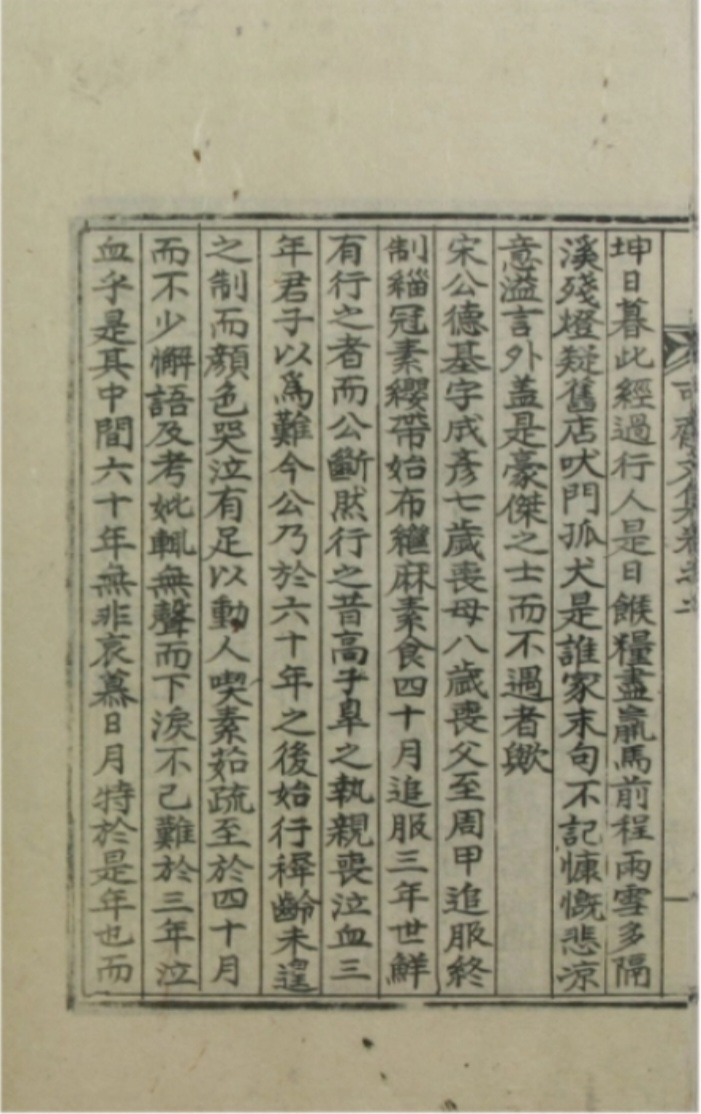 坤日暮此經過行人是日餱糧盡羸馬前程雨雪多隔
溪殘燈疑舊店吠門孤犬是誰家末句不記慷慨悲凉
意溢言外盖是豪傑之士而不遇者歟
宋公德基字成彦七歲喪母八歲喪父至周甲追服終
制緇冠素纓帶始布繼麻素食四十月追服三年世鮮
有行之者而公斷然行之昔高子臯之執親喪泣血三
年君子以爲難今公乃於六十年之後始行稺齡未遑
之制而顔色哭泣有足以動人喫素茹疏至於四十月
而不少懈語及考妣輒無聲而下淚不已難於三年泣
血乎是其中間六十年無非哀慕日月特於是年也而